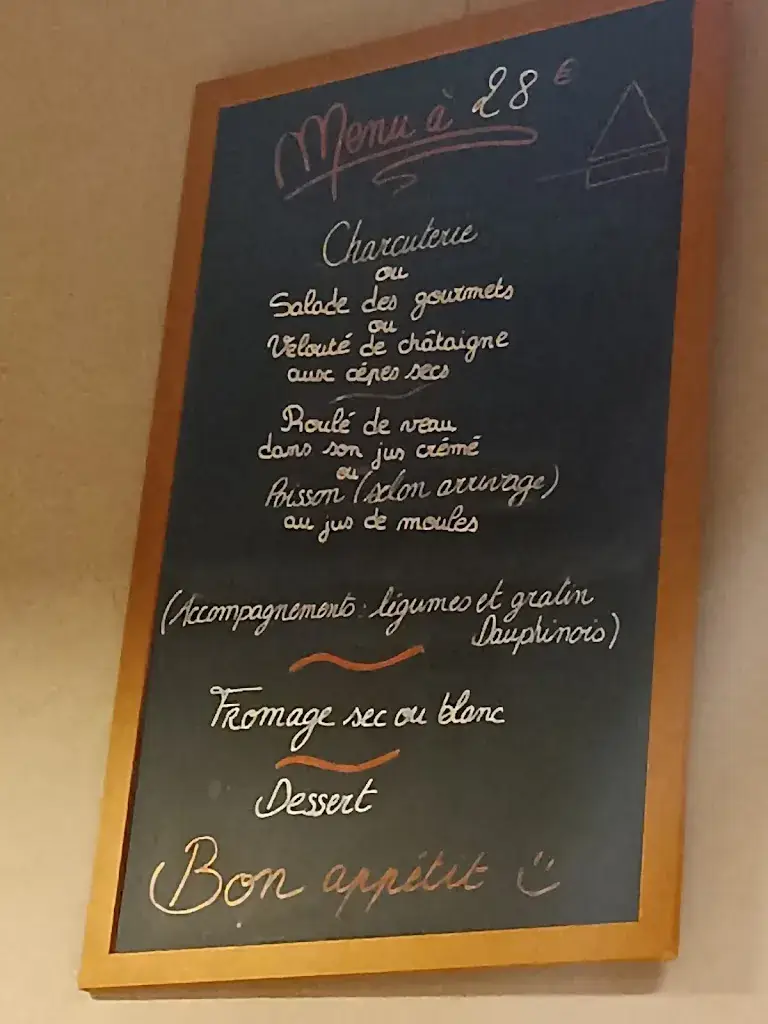 Menu à 28 €
Charcuterie
ou
Salade des gourmets
ou
Velouté de châtaigne
aux cépes secs
Roulé de veau
dans son jus crémé
ou
Poisson (selon arrivage)
au jus de moules
(Accompagnements : légumes et gratin
Dauphinois)
Fromage sec ou blanc
Dessert
Bon appétit